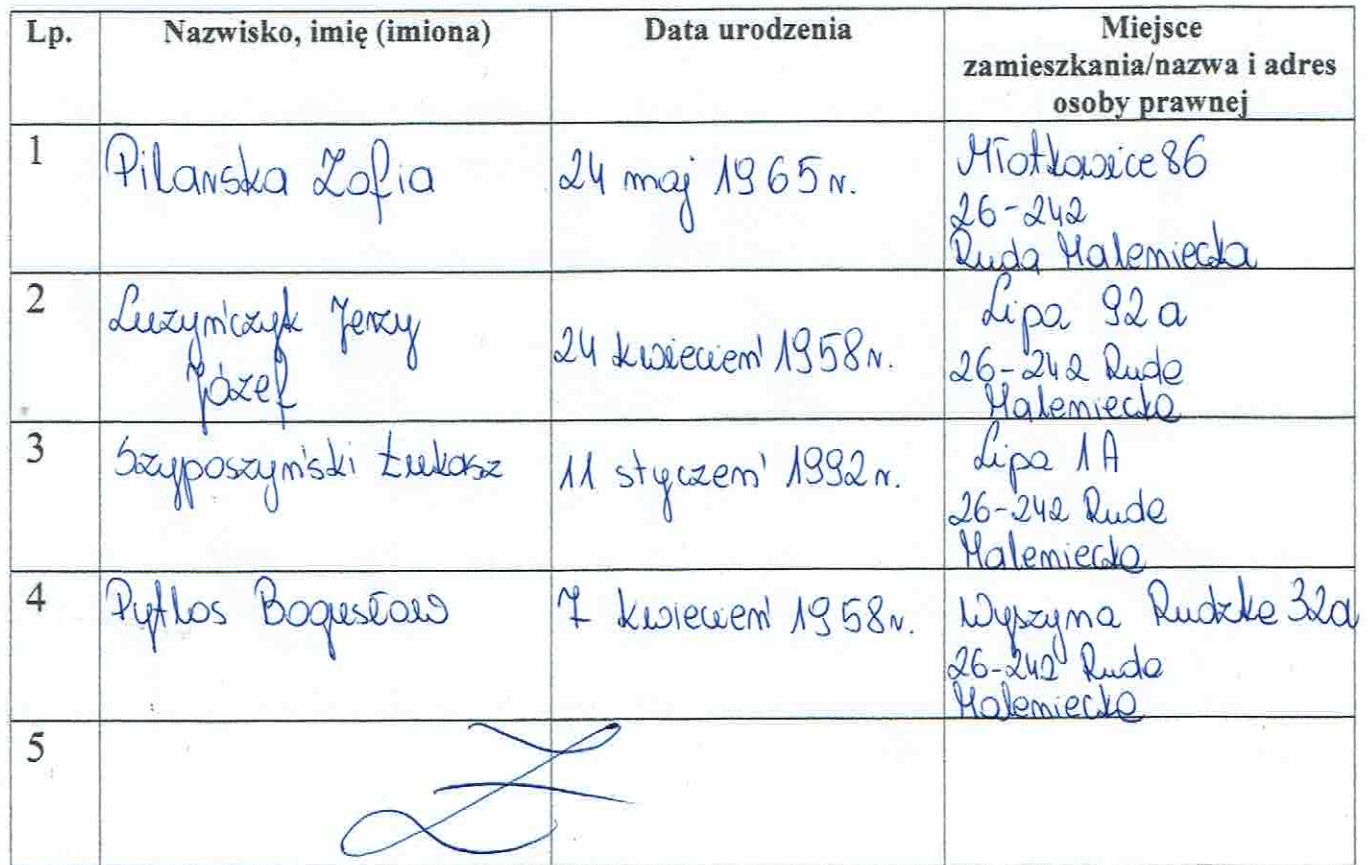 Lp. Nazwisko, imię (imiona) Data urodzenia Miejsce
zamieszkania/nazwa i adres
osoby prawnej
1 Pilarska Zofia 24 maj 1965 r. Młotkowice 86
26-242
Ruda Maleniecka
2 Luzyńczyk Jerzy
Józef 24 kwiecień 1958 r. Lipa 92 a
26-242 Ruda
Maleniecka
3 Szyposzyński Łukasz 11 styczeń 1992 r. Lipa 1A
26-242 Ruda
Maleniecka
4 Pytlos Bogusław 7 kwiecień 1958 r. Wyszyna Rudzka 32a
26-242 Ruda
Maleniecka
5